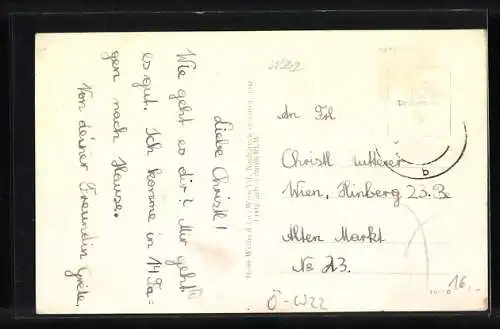 Liebe Christl!
Wie geht es dir? Mir geht
es gut. Ich komme in 14 Ta=
gen nach Hause.
Von deiner Freundin Grete.
WZ2
An Frl
Christl
Wien, Himberg 23. Be
Alten Markt
No 23.
b
16,-
Ö-WZZ